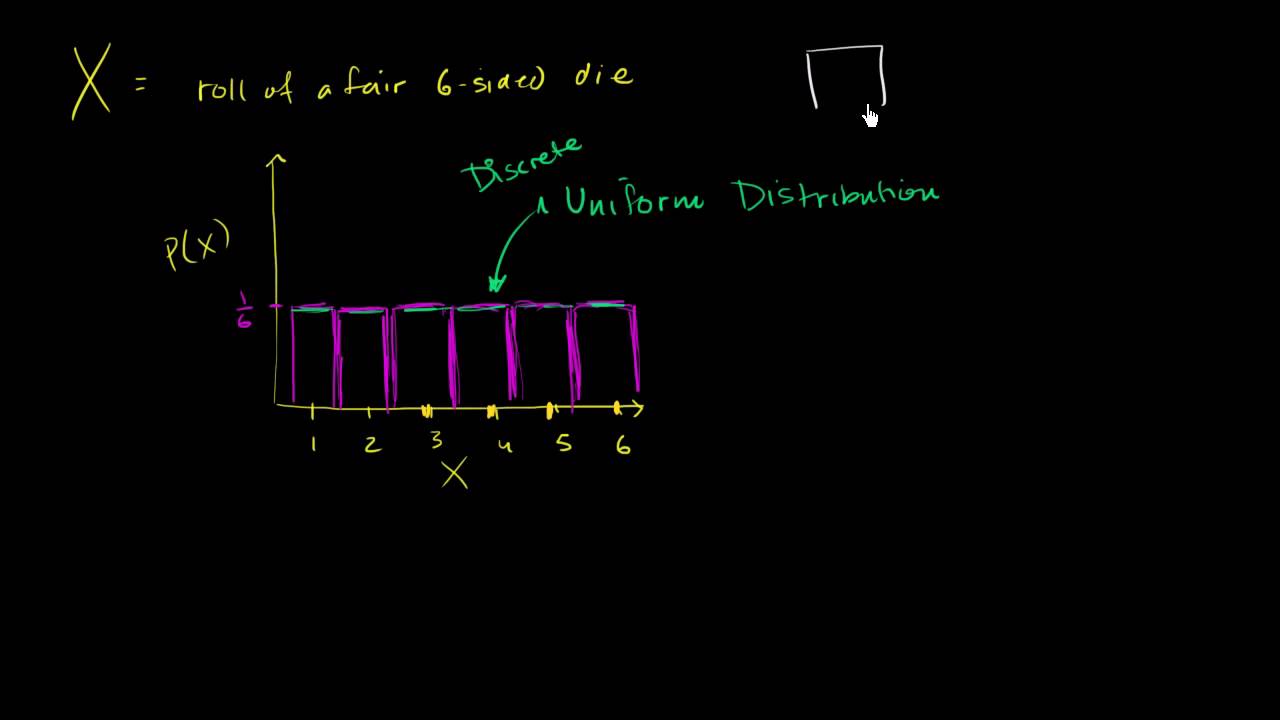 X = roll of a fair 6-sided die
Discrete
Uniform Distribution
P(X)
1/6
1 2 3 4 5 6
X